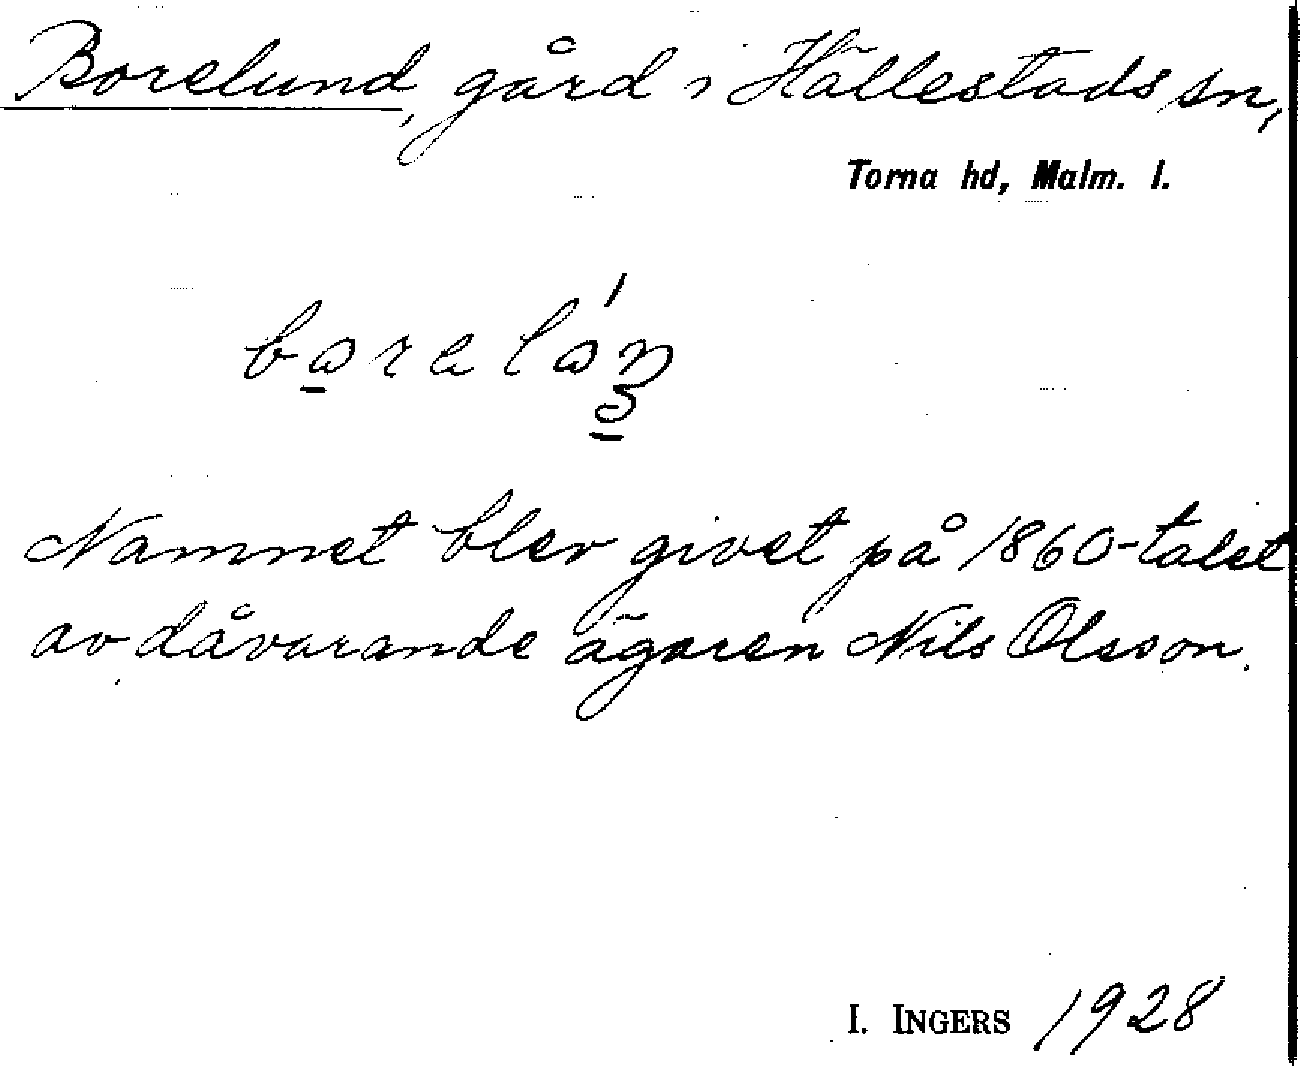 Borelund, gård i Hällestads sn,
Torna hd, Malm. l.
Namnet blev givet på 1860-talet
av dåvarande ägaren Nils Olsson.
I. INGERS 1928